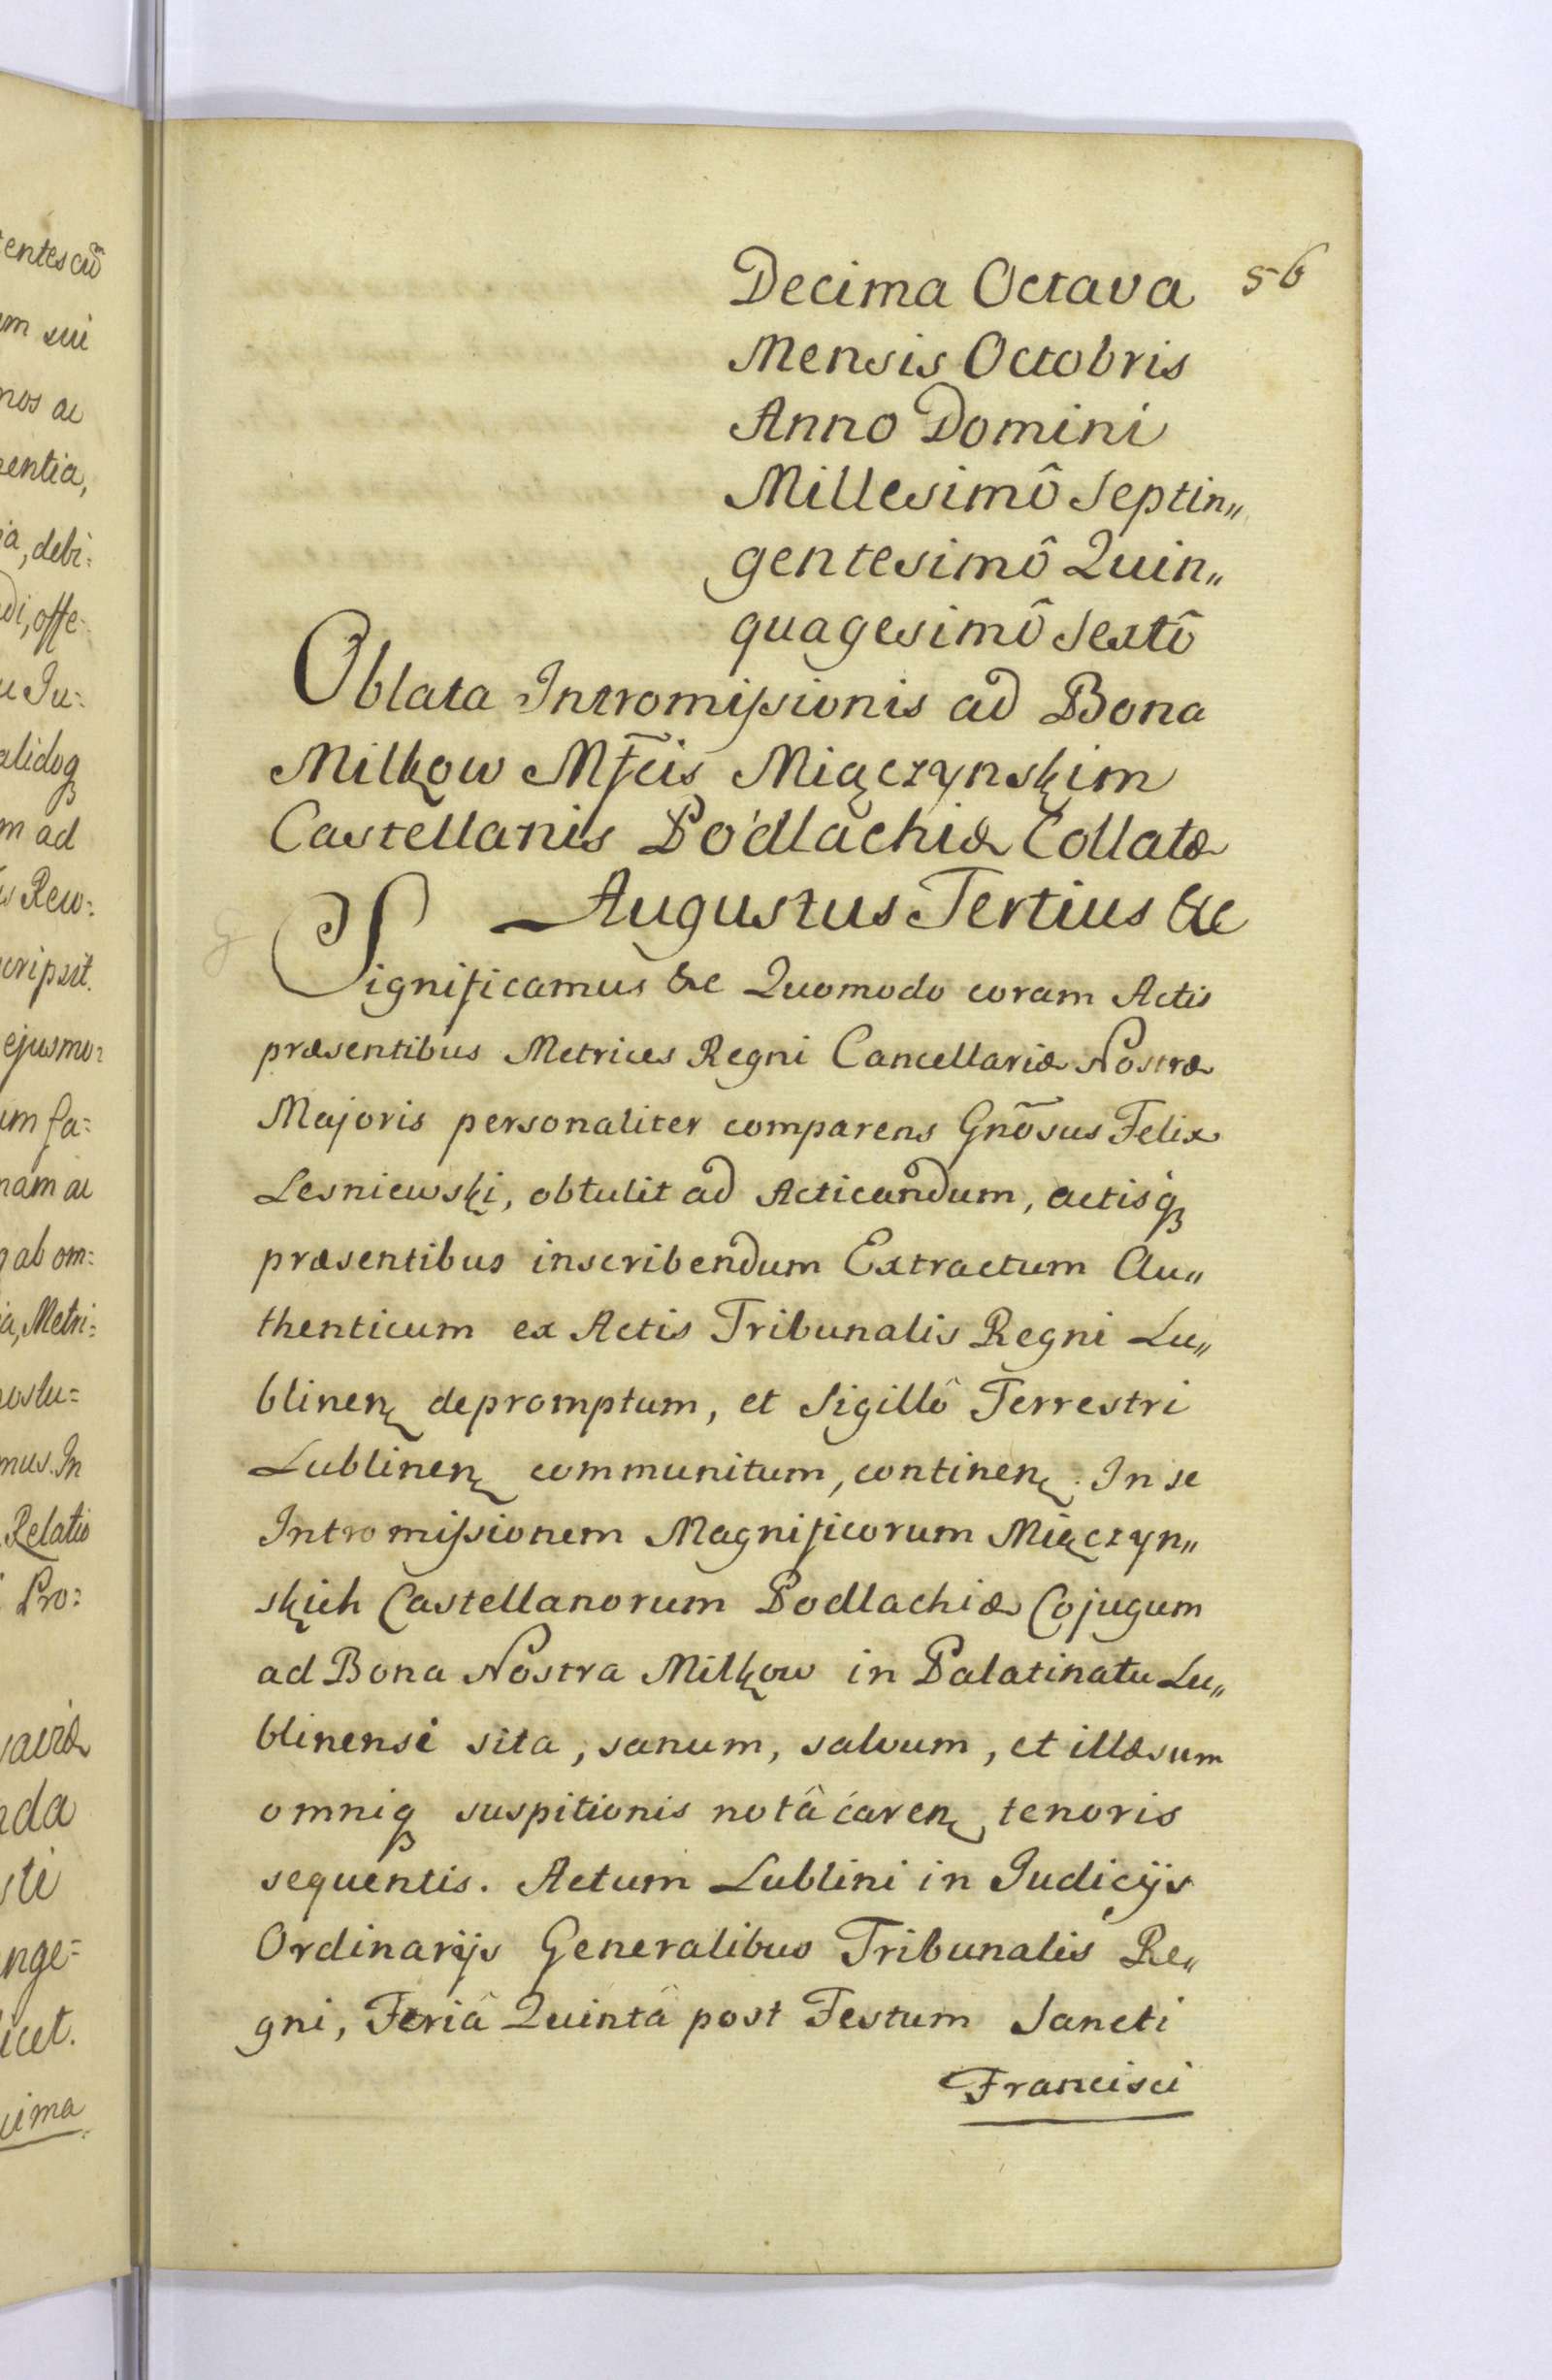 56
Decima Octava
Mensis Octobris
Anno Domini
Millesimô Septin„
gentesimô Quin„
quagesimô Sextô
Oblata Intromissionis ad Bona
Milkow Mfcis Miączynskim
Castellanis Podlachiæ Collatæ
Augustus Tertius &c
Significamus &c Quomodo coram Actis
præsentibus Metrices Regni Cancellariæ Nostræ
Majoris personaliter comparens Gnõsus Felix
Lesniewski, obtulit ad Acticandum, actisq3
præsentibus inscribendum Extractum Au„
thenticum ex Actis Tribunalis Regni Lu„
blinen depromptum, et Sigillô Terrestri
Lublinen communitum, continen. In se
Intromissionem Magnificorum Miączyn„
skich Castellanorum Podlachiæ Cojugum
ad Bona Nostra Milkow in Palatinatu Lu„
blinensi sita, sanum, salvum, et illæsum
omniq3 suspitionis notâ caren, tenoris
sequentis. Actum Lublini in Judicijs
Ordinarijs Generalibus Tribunalis Re„
gni, Feriâ Quintâ post Festum Sancti
Francisci
tentes cũ
em sui
nos ac
nentia,
ia, debi:
di, offe:
u Ju:
alidoq3
m ad
Rew:
cripsit.
ejusmo:
um fa:
nam ac
q ab om:
ia, Metri:
ostu:
mus. In
Relatio
Pro:
nda
sti
nge:
icet.